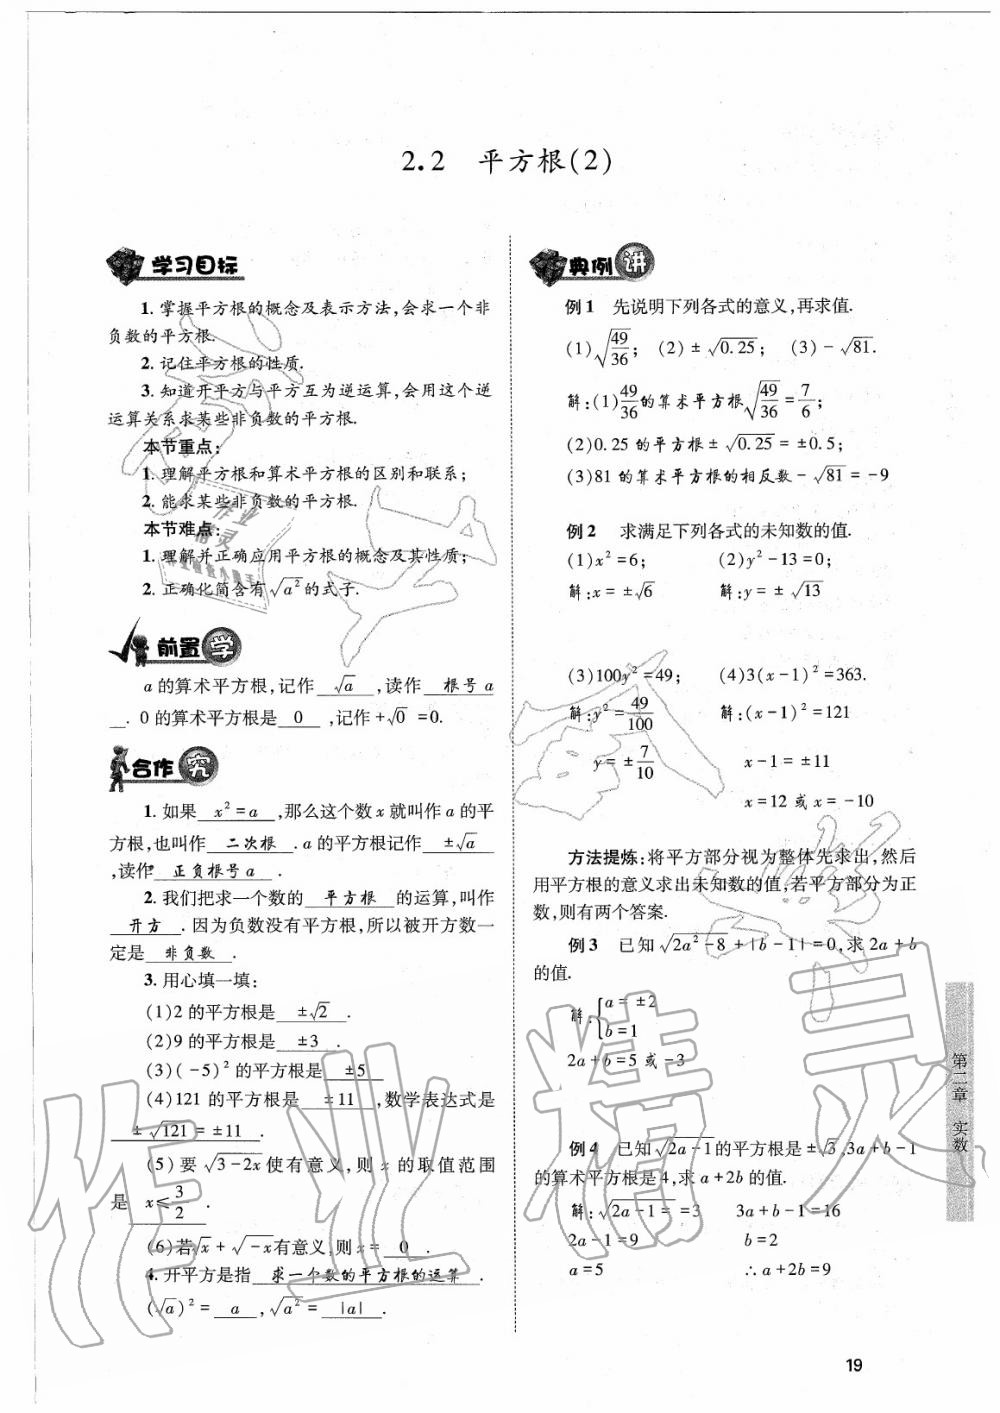 2.2 平方根(2)
学习目标
1. 掌握平方根的概念及表示方法,会求一个非
负数的平方根.
2. 记住平方根的性质.
3. 知道开平方与平方互为逆运算,会用这个逆
运算关系求某些非负数的平方根.
本节重点:
1. 理解平方根和算术平方根的区别和联系;
2. 能求某些非负数的平方根.
本节难点:
1. 理解并正确应用平方根的概念及其性质;
2. 正确化简含有√a²的式子.
前置 学
a 的算术平方根,记作 √a ,读作 根号 a
. 0 的算术平方根是 0 ,记作+√0 =0.
合作 究
1. 如果 x²=a ,那么这个数 x 就叫作 a 的平
方根,也叫作 二次根 . a 的平方根记作 ±√a
,读作 正负根号 a .
2. 我们把求一个数的 平方根 的运算,叫作
开方 . 因为负数没有平方根,所以被开方数一
定是 非负数 .
3. 用心填一填:
(1)2 的平方根是 ±√2 .
(2)9 的平方根是 ±3 .
(3)(-5)² 的平方根是 ±5
(4)121 的平方根是 ±11 ,数学表达式是
±√121=±11 .
(5)要 √3-2x 使有意义,则 x 的取值范围
是 x≤3/2 .
(6)若√x+√-x有意义,则 x= 0 .
4. 开平方是指 求一个数的平方根的运算 .
(√a)²= a ,√a²= |a| .
典例 讲
例 1 先说明下列各式的意义,再求值.
(1)√49/36; (2)±√0.25; (3)-√81.
解:(1)49/36的算术平方根√49/36=7/6;
(2)0.25 的平方根±√0.25=±0.5;
(3)81 的算术平方根的相反数-√81=-9
例 2 求满足下列各式的未知数的值.
(1)x²=6; (2)y²-13=0;
解:x=±√6 解:y=±√13
(3)100y²=49; (4)3(x-1)²=363.
解:y²=49/100 解:(x-1)²=121
y=±7/10 x-1=±11
x=12 或 x=-10
方法提炼:将平方部分视为整体先求出,然后
用平方根的意义求出未知数的值,若平方部分为正
数,则有两个答案.
例 3 已知√2a²-8+|b-1|=0,求 2a+b
的值.
解:{a=±2
b=1
2a+b=5 或-3
例 4 已知√2a-1的平方根是±√3,3a+b-1
的算术平方根是 4,求 a+2b 的值.
解:√2a-1==3 3a+b-1=16
2a-1=9 b=2
a=5 ∴a+2b=9
第二章 实数
19
作业精灵